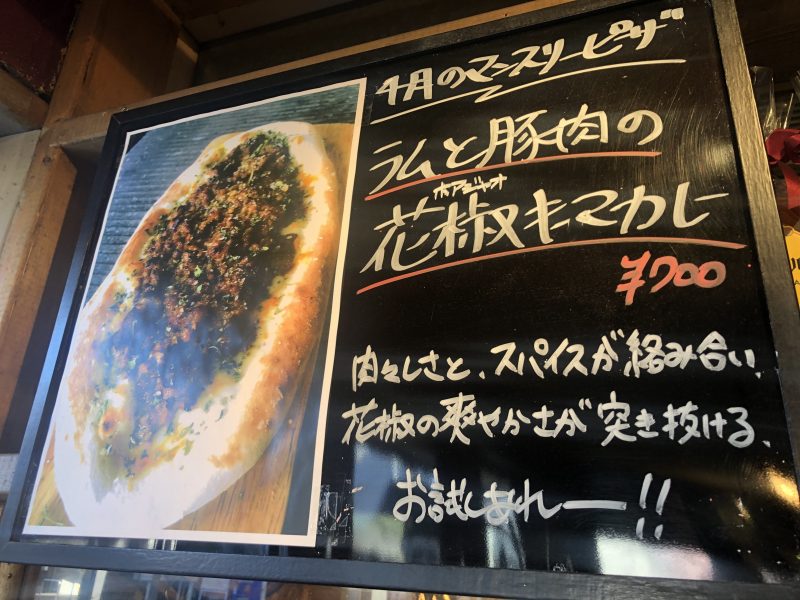 4月のマンスリーピザ
ラムと豚肉の
ホアジャオ
花椒キーマカレー
¥700
肉々しさと、スパイスが絡み合い、
花椒の爽やかさが突き抜ける、
お試しあれー!!